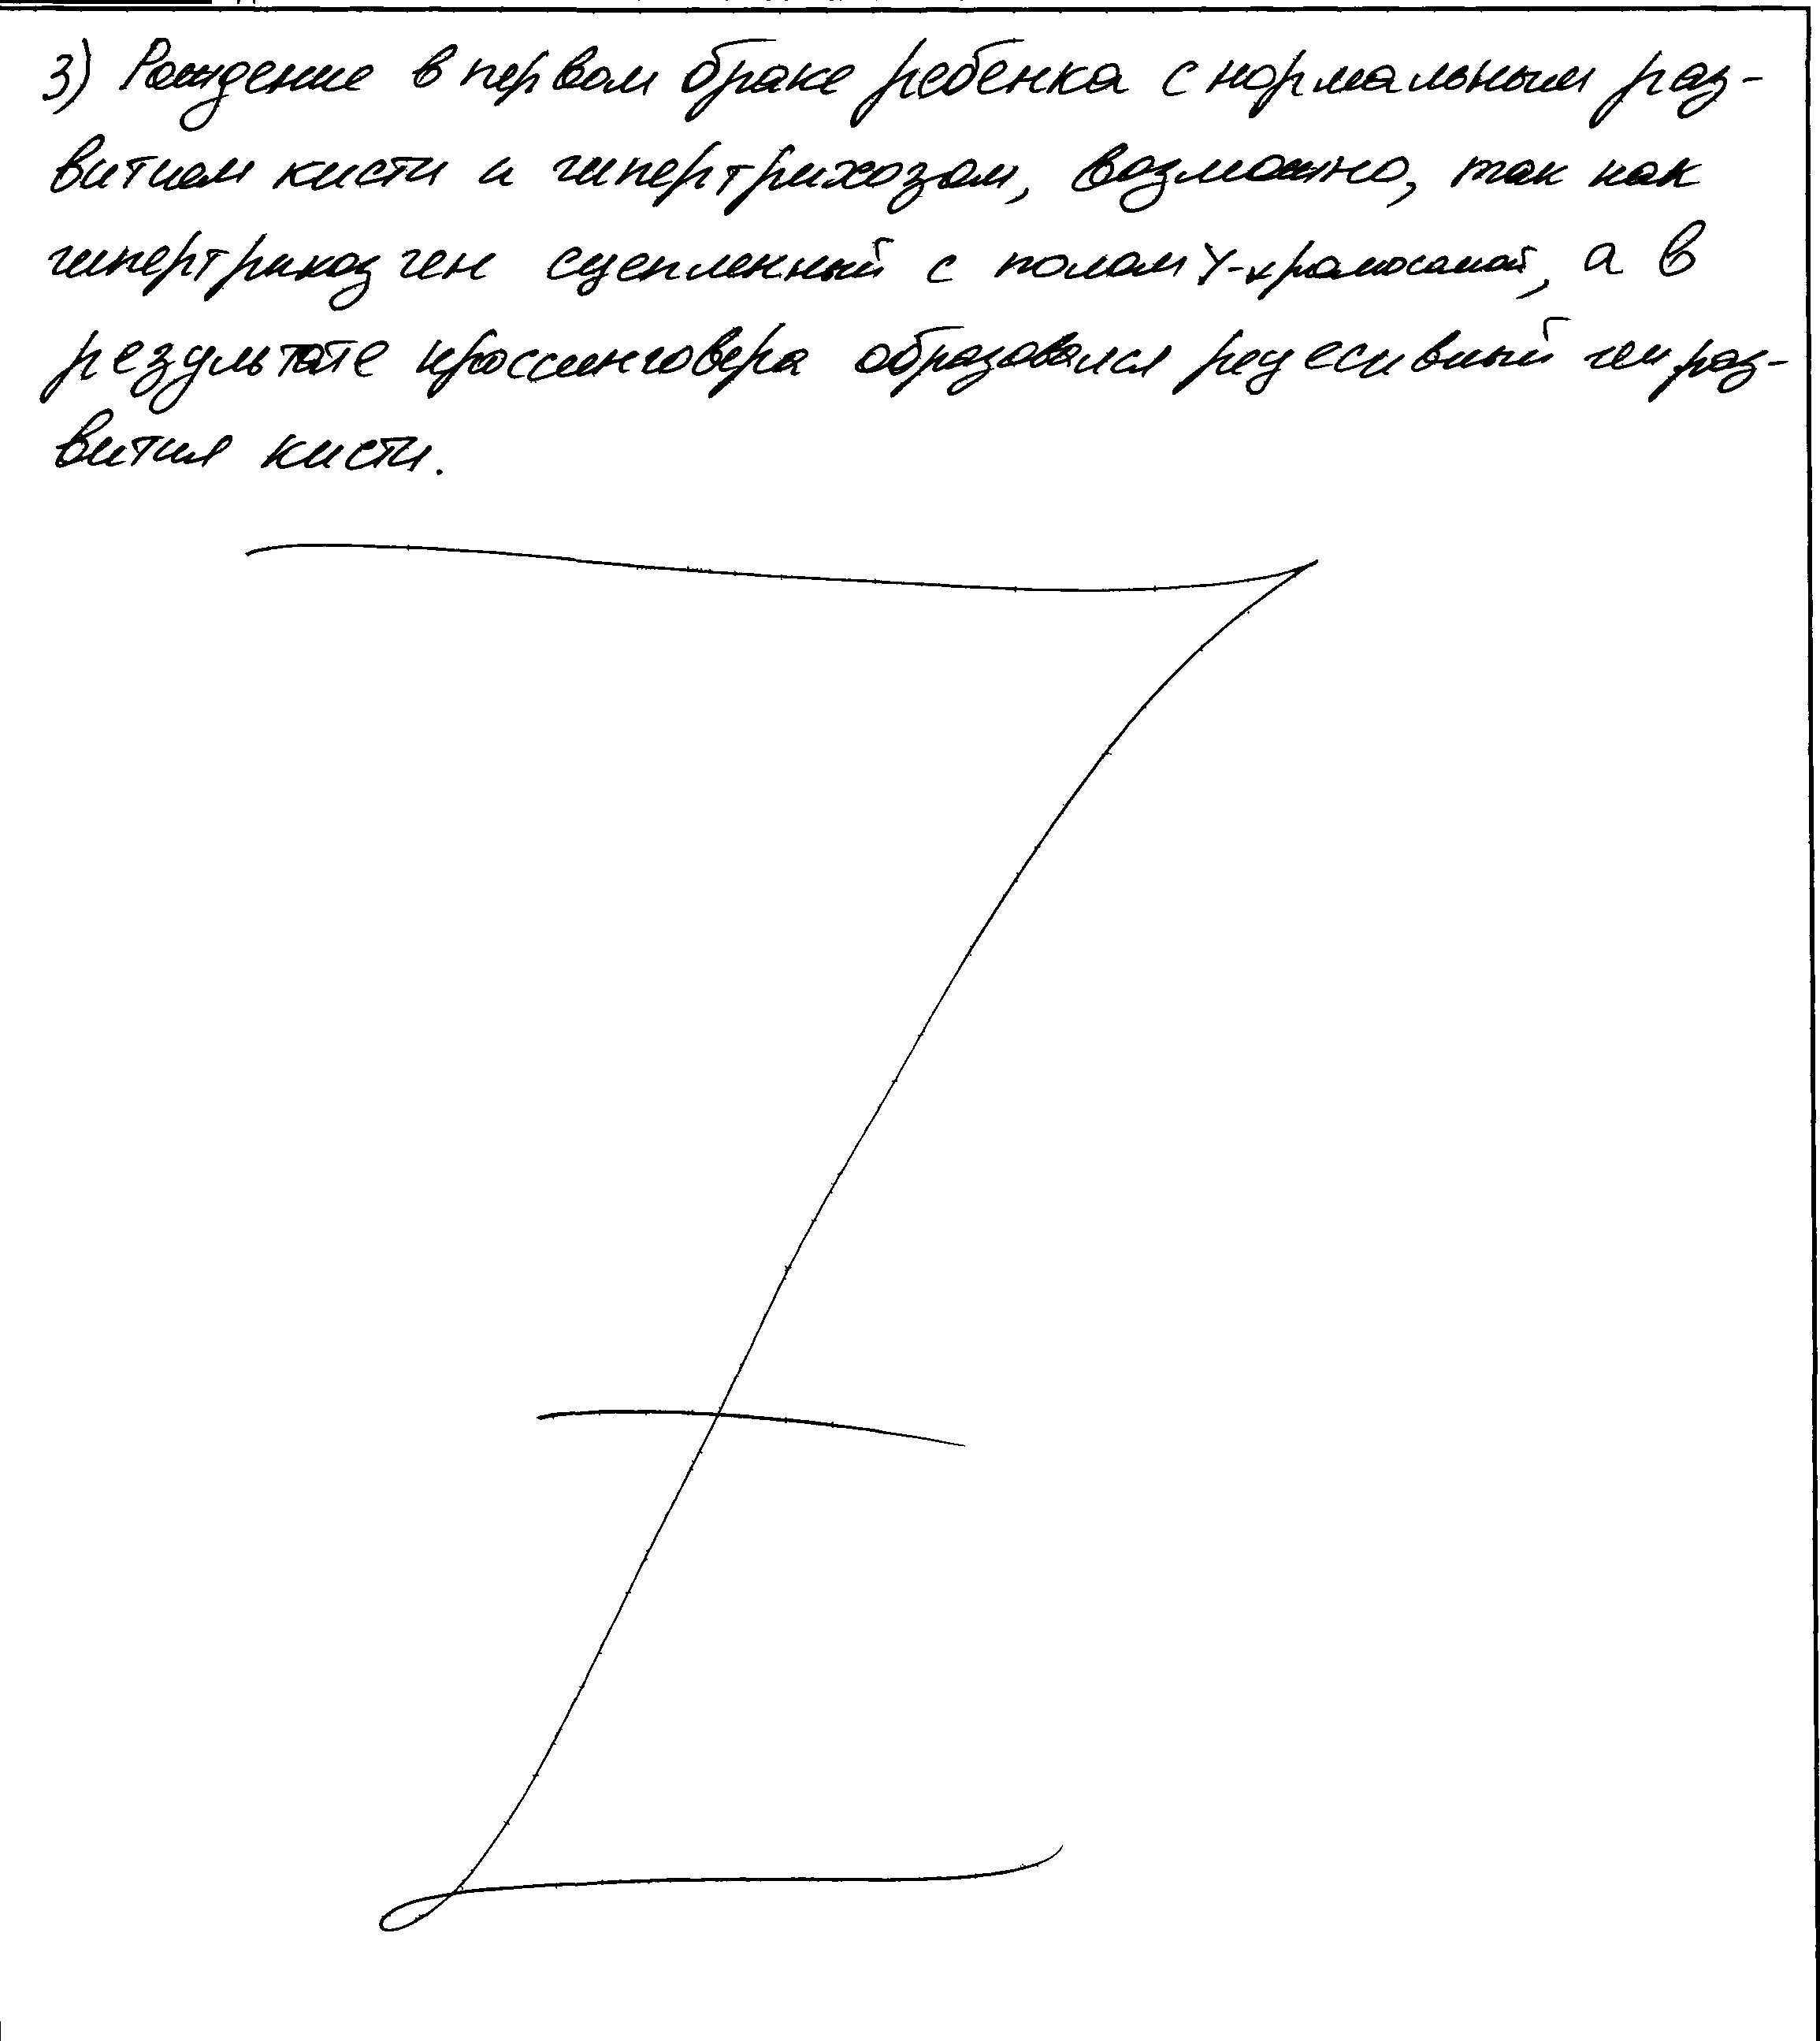 3) Рождение в первом браке ребенка с нормальным раз-
витием кисти и гипертрихозом, возможно, так как
гипертрихоз ген сцепленный с полом Y-хромосомой, а в
результате кроссинговера образовался рецесивный ген раз-
вития кисти.